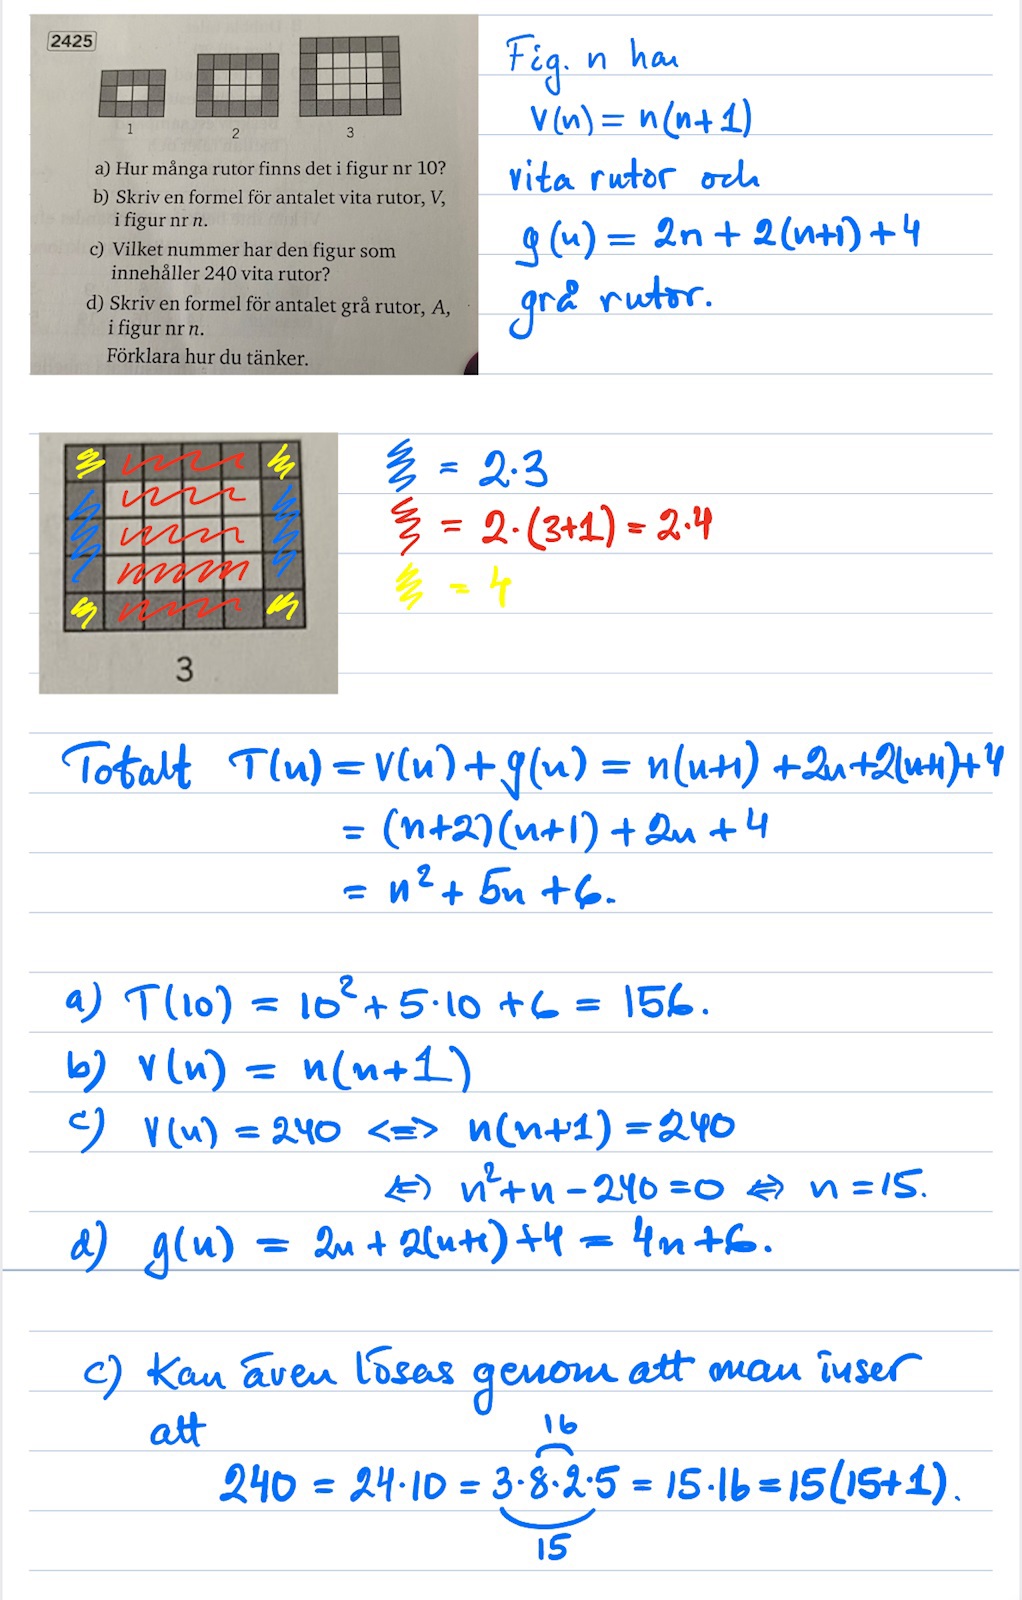 2425
1
2
3
a) Hur många rutor finns det i figur nr 10?
b) Skriv en formel för antalet vita rutor, V,
i figur nr n.
c) Vilket nummer har den figur som
innehåller 240 vita rutor?
d) Skriv en formel för antalet grå rutor, A,
i figur nr n.
Förklara hur du tänker.
Fig. n har
V(n) = n(n+1)
vita rutor och
g(n) = 2n + 2(n+1) + 4
grå rutor.
3
= 2·3
= 2·(3+1) = 2·4
= 4
Totalt T(n) = V(n) + g(n) = n(n+1) + 2n + 2(n+1) + 4
= (n+2)(n+1) + 2n + 4
= n² + 5n + 6.
a) T(10) = 10² + 5·10 + 6 = 156.
b) V(n) = n(n+1)
c) V(n) = 240 <=> n(n+1) = 240
<=> n² + n - 240 = 0 <=> n = 15.
d) g(n) = 2n + 2(n+1) + 4 = 4n + 6.
c) Kan även lösas genom att man inser
att
16
240 = 24·10 = 3·8·2·5 = 15·16 = 15(15+1).
15